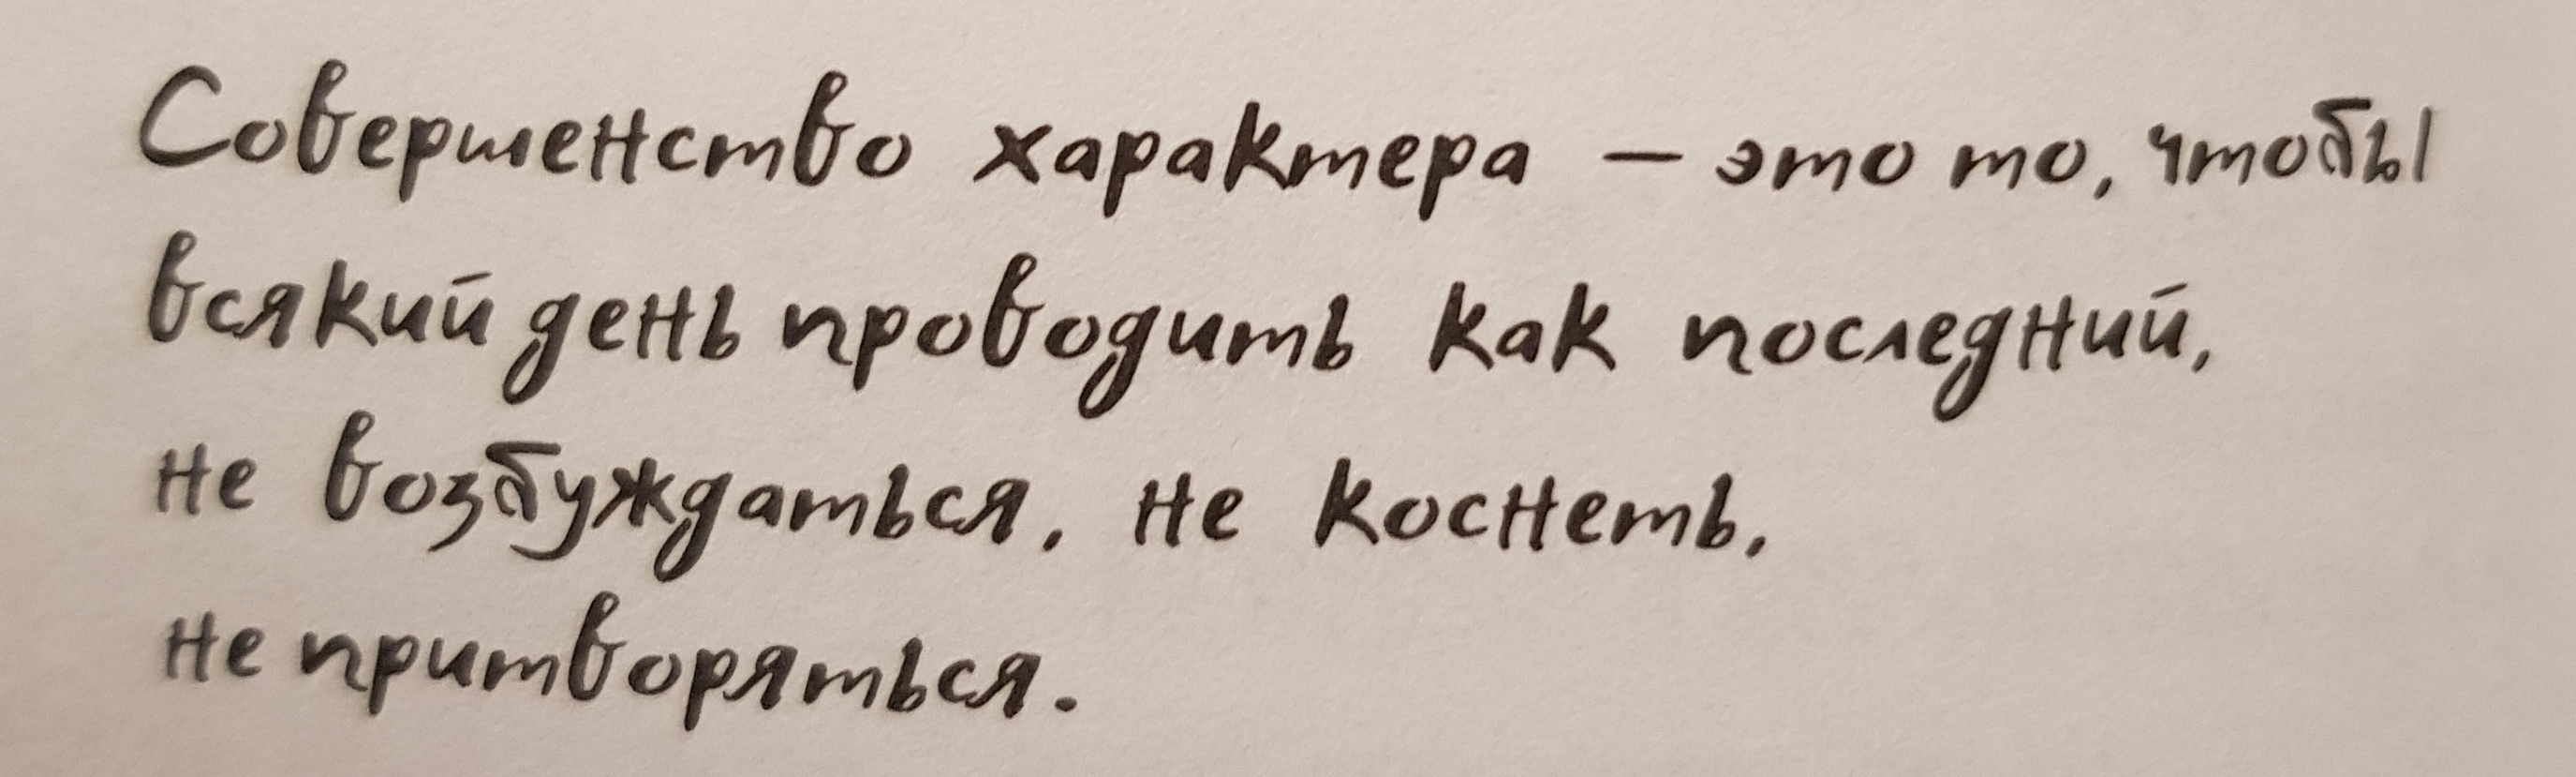 Совершенство характера – это то, чтобы
всякий день проводить как последний,
не возбуждаться, не коснеть,
не притворяться.